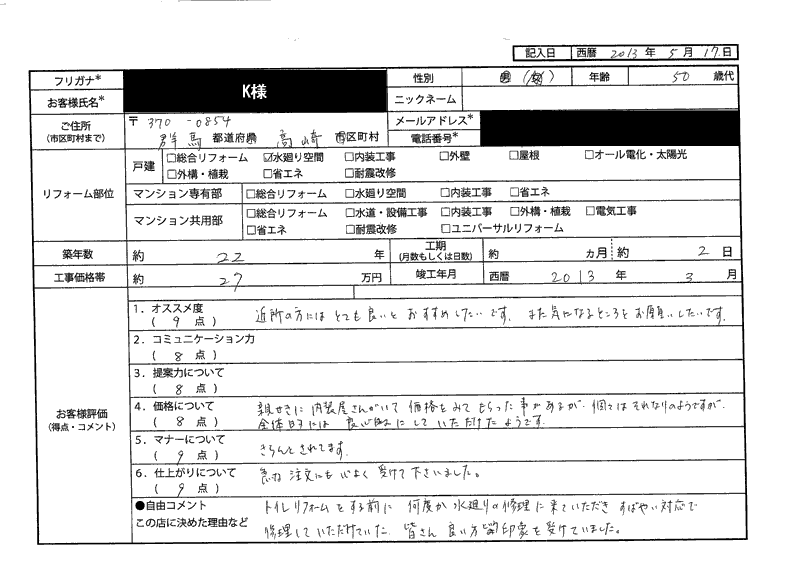 記入日 西暦 2013 年 5 月 17 日
フリガナ*
お客様氏名*
K様
性別 男 (女) 年齢 50 歳代
ニックネーム
ご住所
(市区町村まで)
〒370-0854
群馬 都道府県 高崎 市区町村
メールアドレス*
電話番号*
リフォーム部位
戸建 □総合リフォーム ☑水廻り空間 □内装工事 □外壁 □屋根 □オール電化・太陽光
□外構・植栽 □省エネ □耐震改修
マンション専有部 □総合リフォーム □水廻り空間 □内装工事 □省エネ
マンション共用部 □総合リフォーム □水道・設備工事 □内装工事 □外構・植栽 □電気工事
□省エネ □耐震改修 □ユニバーサルリフォーム
築年数 約 22 年
工期
(月数もしくは日数)
約 ヵ月 約 2 日
工事価格帯 約 27 万円
竣工年月 西暦 2013 年 3 月
お客様評価
(得点・コメント)
1．オススメ度
( 9 点 )
近所の方には とても良いと おすすめしたいです。 また気になるところをお願いしたいです。
2．コミュニケーション力
( 8 点 )
3．提案力について
( 8 点 )
4．価格について
( 8 点 )
親せきに 内装屋さんがいて 価格をみてもらった事があるが、個々はそれなりのようですが、
全体的には 良心的に していただけたようです。
5．マナーについて
( 9 点 )
きちんとされてます。
6．仕上がりについて
( 9 点 )
急な 注文にも 心よく 受けて下さいました。
●自由コメント
この店に決めた理由など
トイレリフォームをする前に 何度か 水廻りの修理に来ていただき すばやい対応で
修理していただけていた。皆さん 良い方 印象を受けていました。